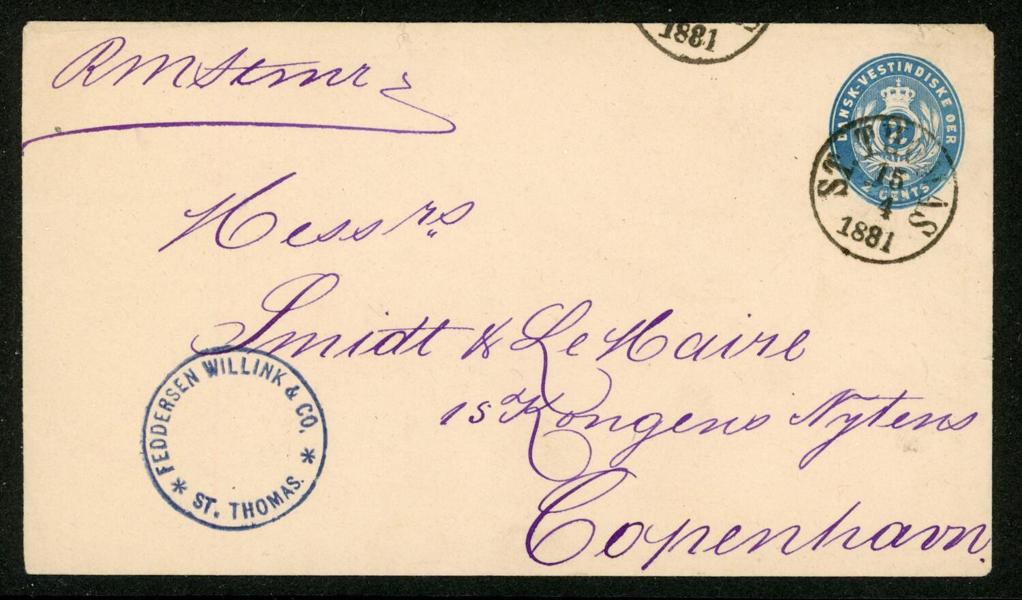 1881
RMStmr
DANSK-VESTINDISKE ØER
2 CENTS
ST. THOMAS
15
4
1881
Messrs
Smidt & Le Maire
15 Kongens Nytens
Copenhavn.
FEDDERSEN WILLINK & CO.
* ST. THOMAS. *